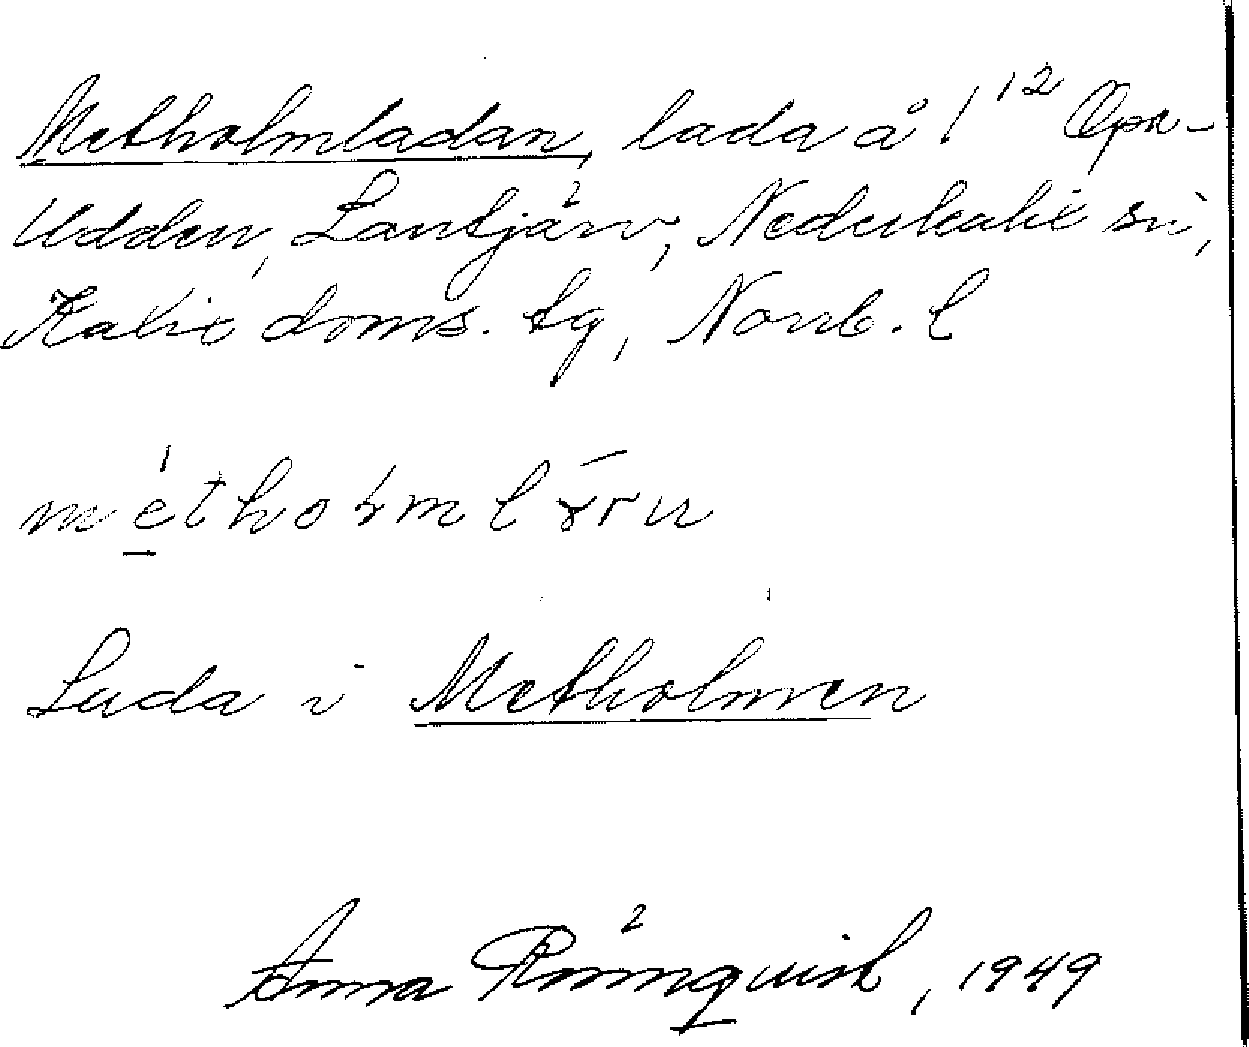 Metholmladan, lada å 1 12 Öpn-
Udden, Lantjärv, Nederkalix sn,
Kalix doms. tg, Norrb. l
Lada i Metholmen
Anna Rönnquist, 1949